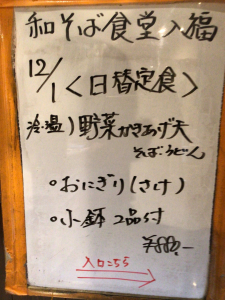 和そば食堂入福
12/1 <日替定食>
冷・温)野菜かきあげ天
そば・うどん
・おにぎり(さけ)
・小鉢 2品付
¥880.-
入口こちら